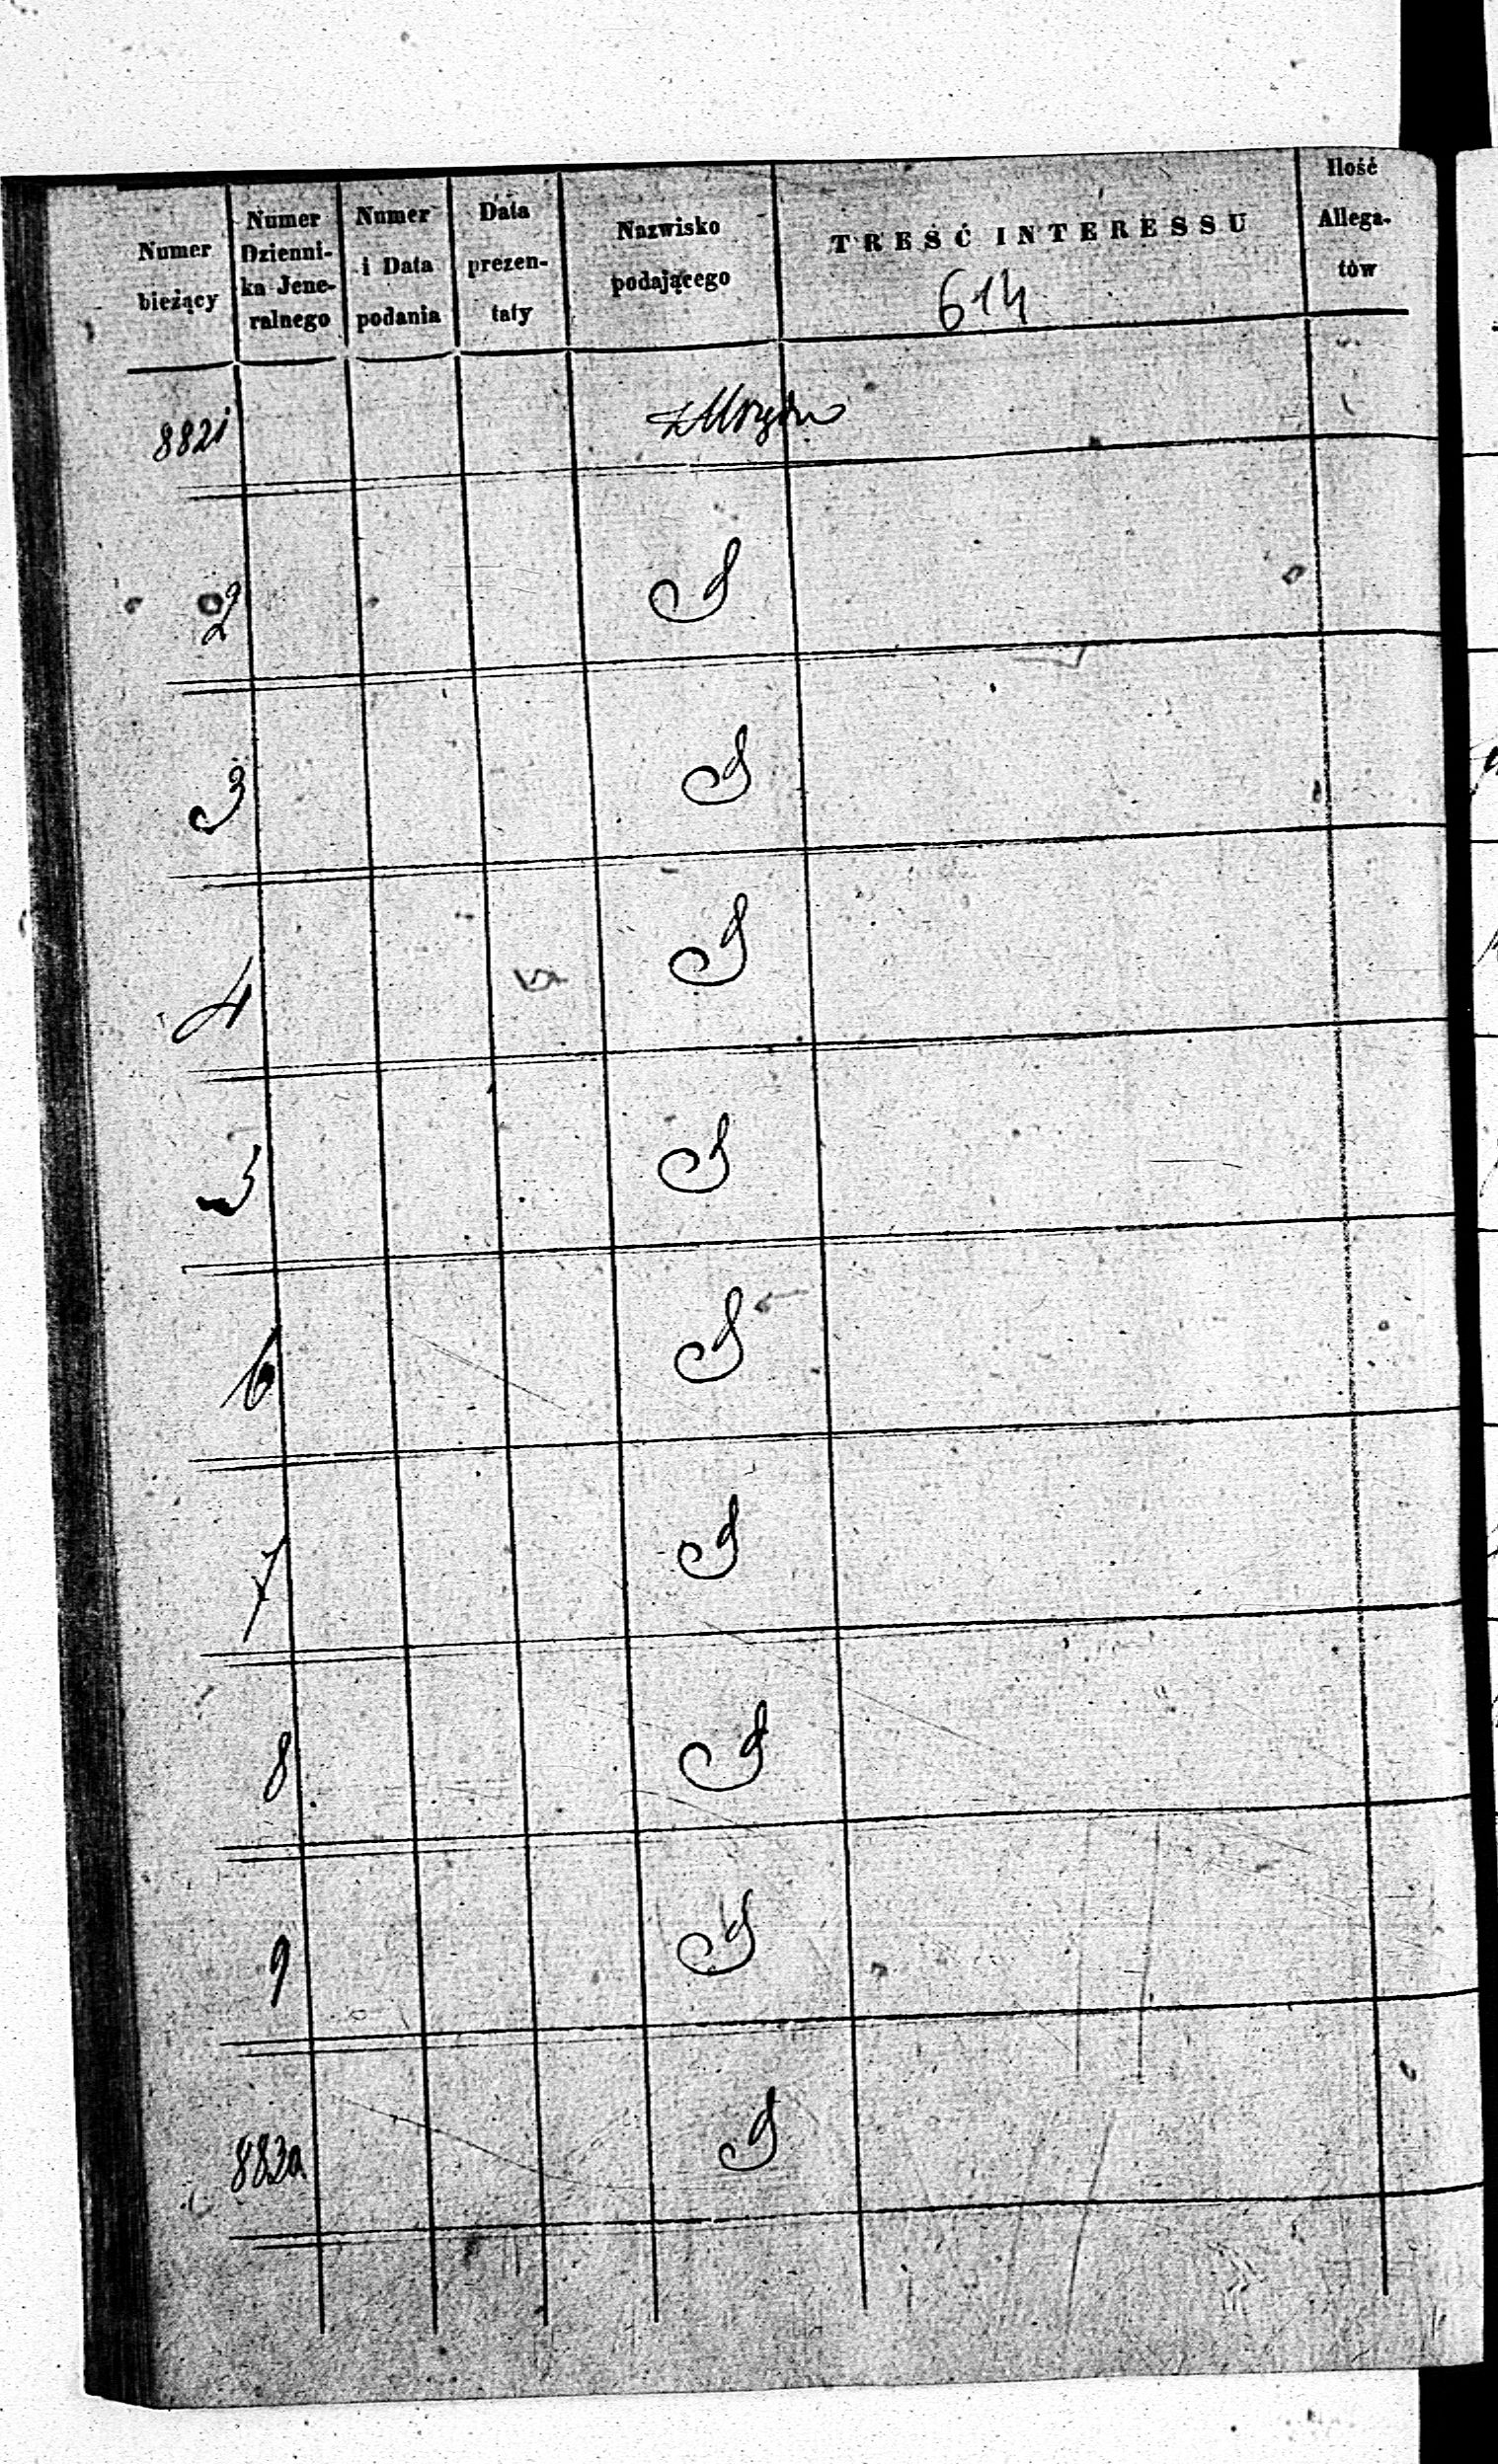 Numer bieżący
Numer Dzienni-ka Jene-ralnego
Numer i Data podania
Data prezen-taty
Nazwisko podającego
TREŚĆ INTERESSU
Ilość Allega-tów
614
8821 z Urzędu
2
3
4
5
6
7
8
9
8830